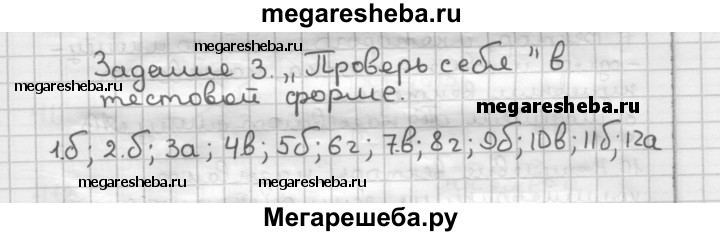 megaresheba.ru
megaresheba.ru
Задание 3. „Проверь себя" в
megaresheba.ru
тестовой форме.
megaresheba.ru
1.б; 2.б; 3а; 4в; 5б; 6г; 7.в; 8г; 9б; 10в; 11б; 12а
megaresheba.ru
megaresheba.ru
Мегарешеба.ру